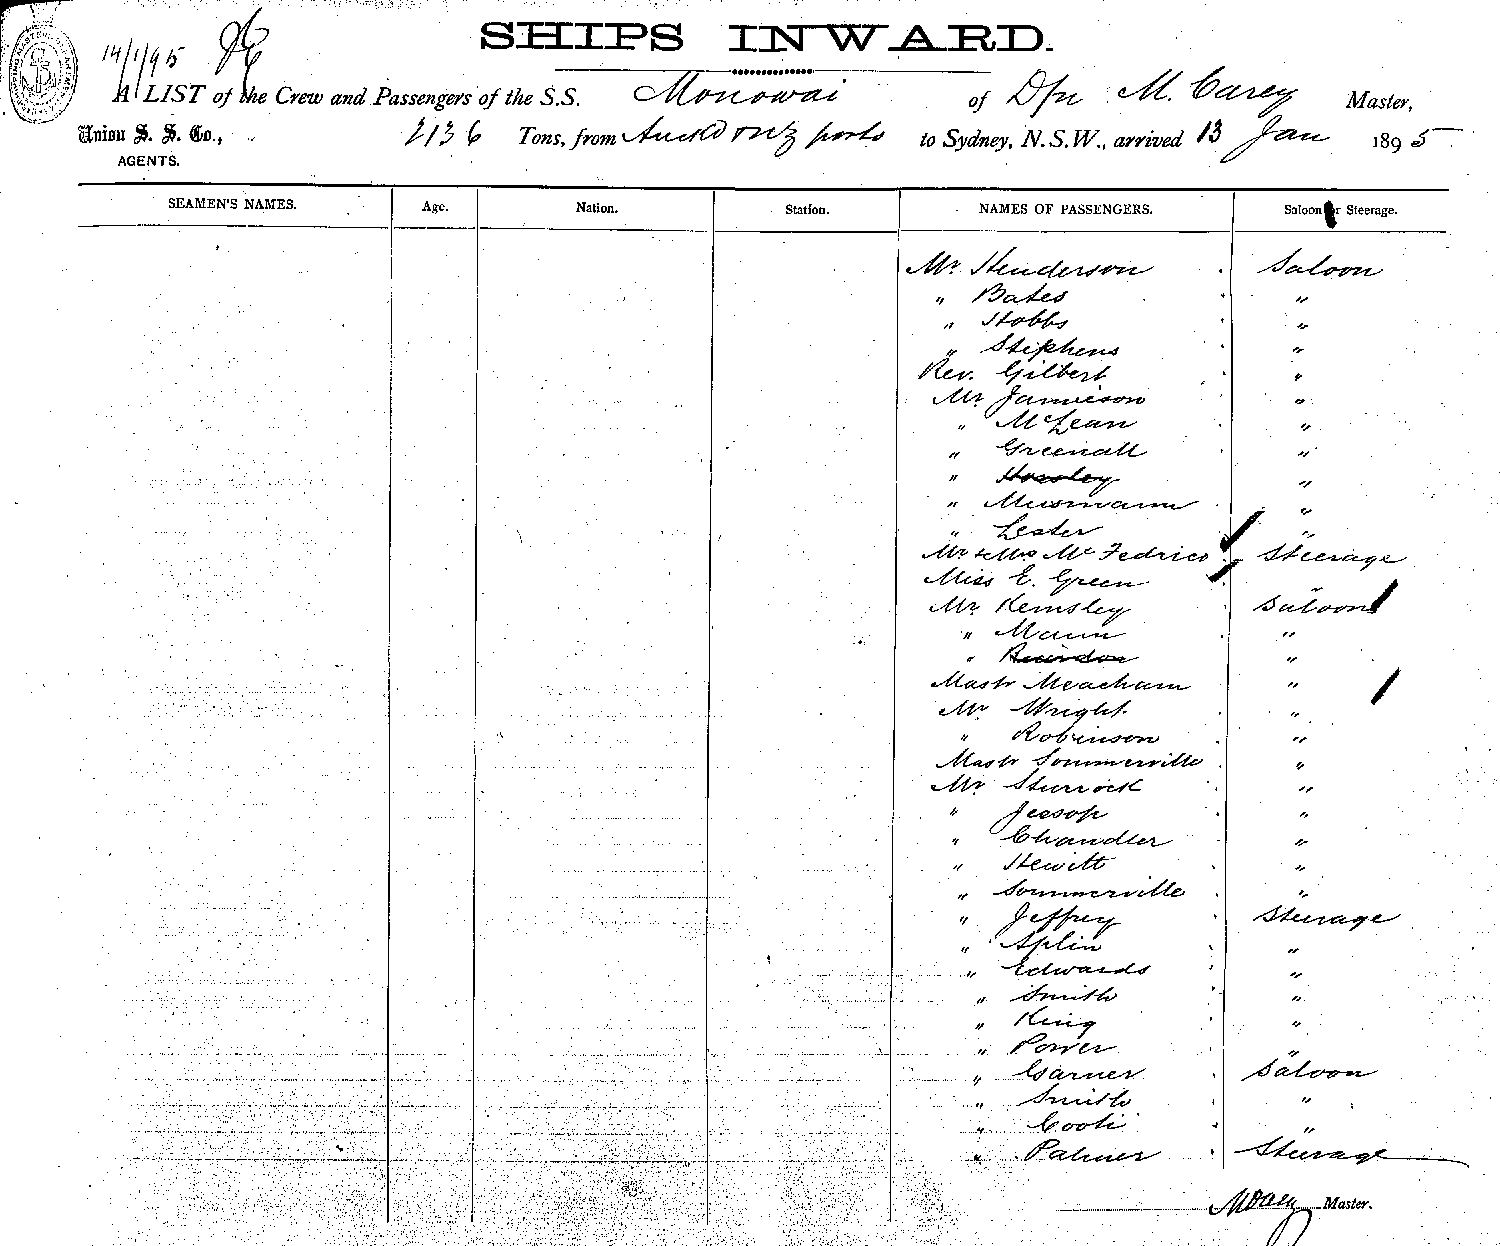 14/1/95
SHIPS INWARD.
A LIST of the Crew and Passengers of the S.S. Monowai of Dfn M. Carey Master,
Union S. S. Co., 2136 Tons, from Auckld ports to Sydney, N.S.W., arrived 13 Jan 1895
AGENTS.
SEAMEN'S NAMES. Age. Nation. Station. NAMES OF PASSENGERS. Saloon or Steerage.
Mr Henderson Saloon
" Bates "
" Hobbs "
" Stephens "
Rev. Gilbert "
Mr Jamieson "
" McLean "
" Greenall "
" Horsley "
" Musmann "
" Lester "
Mr & Mrs McFedrico Steerage
Miss E. Green "
Mr Kemsley Saloon
" Mann "
" "
Mastr Meacham "
Mr Wright "
" Robinson "
Mastr Sommerville "
Mr Sturrock "
" Jessop "
" Chandler "
" Hewitt "
" Sommerville "
" Jeffrey Steerage
" Aplin "
" Edwards "
" Smith "
" King "
" Power "
" Garner Saloon
" Smith "
" Cooti "
" Palmer Steerage
Master.